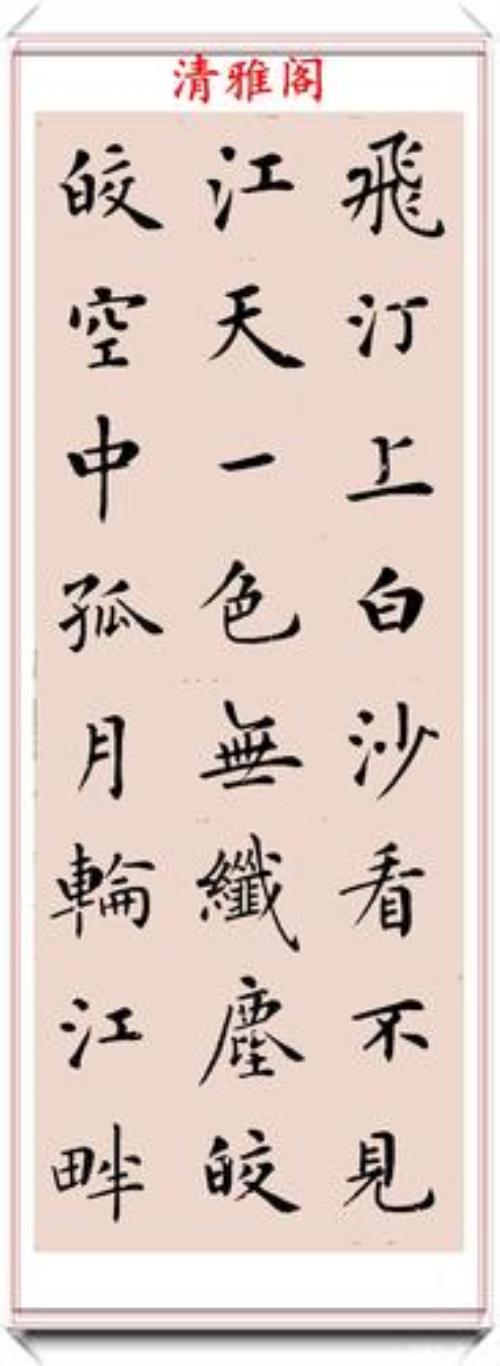 清雅阁
飛汀上白沙看不見
江天一色無纖塵皎
皎空中孤月輪江畔